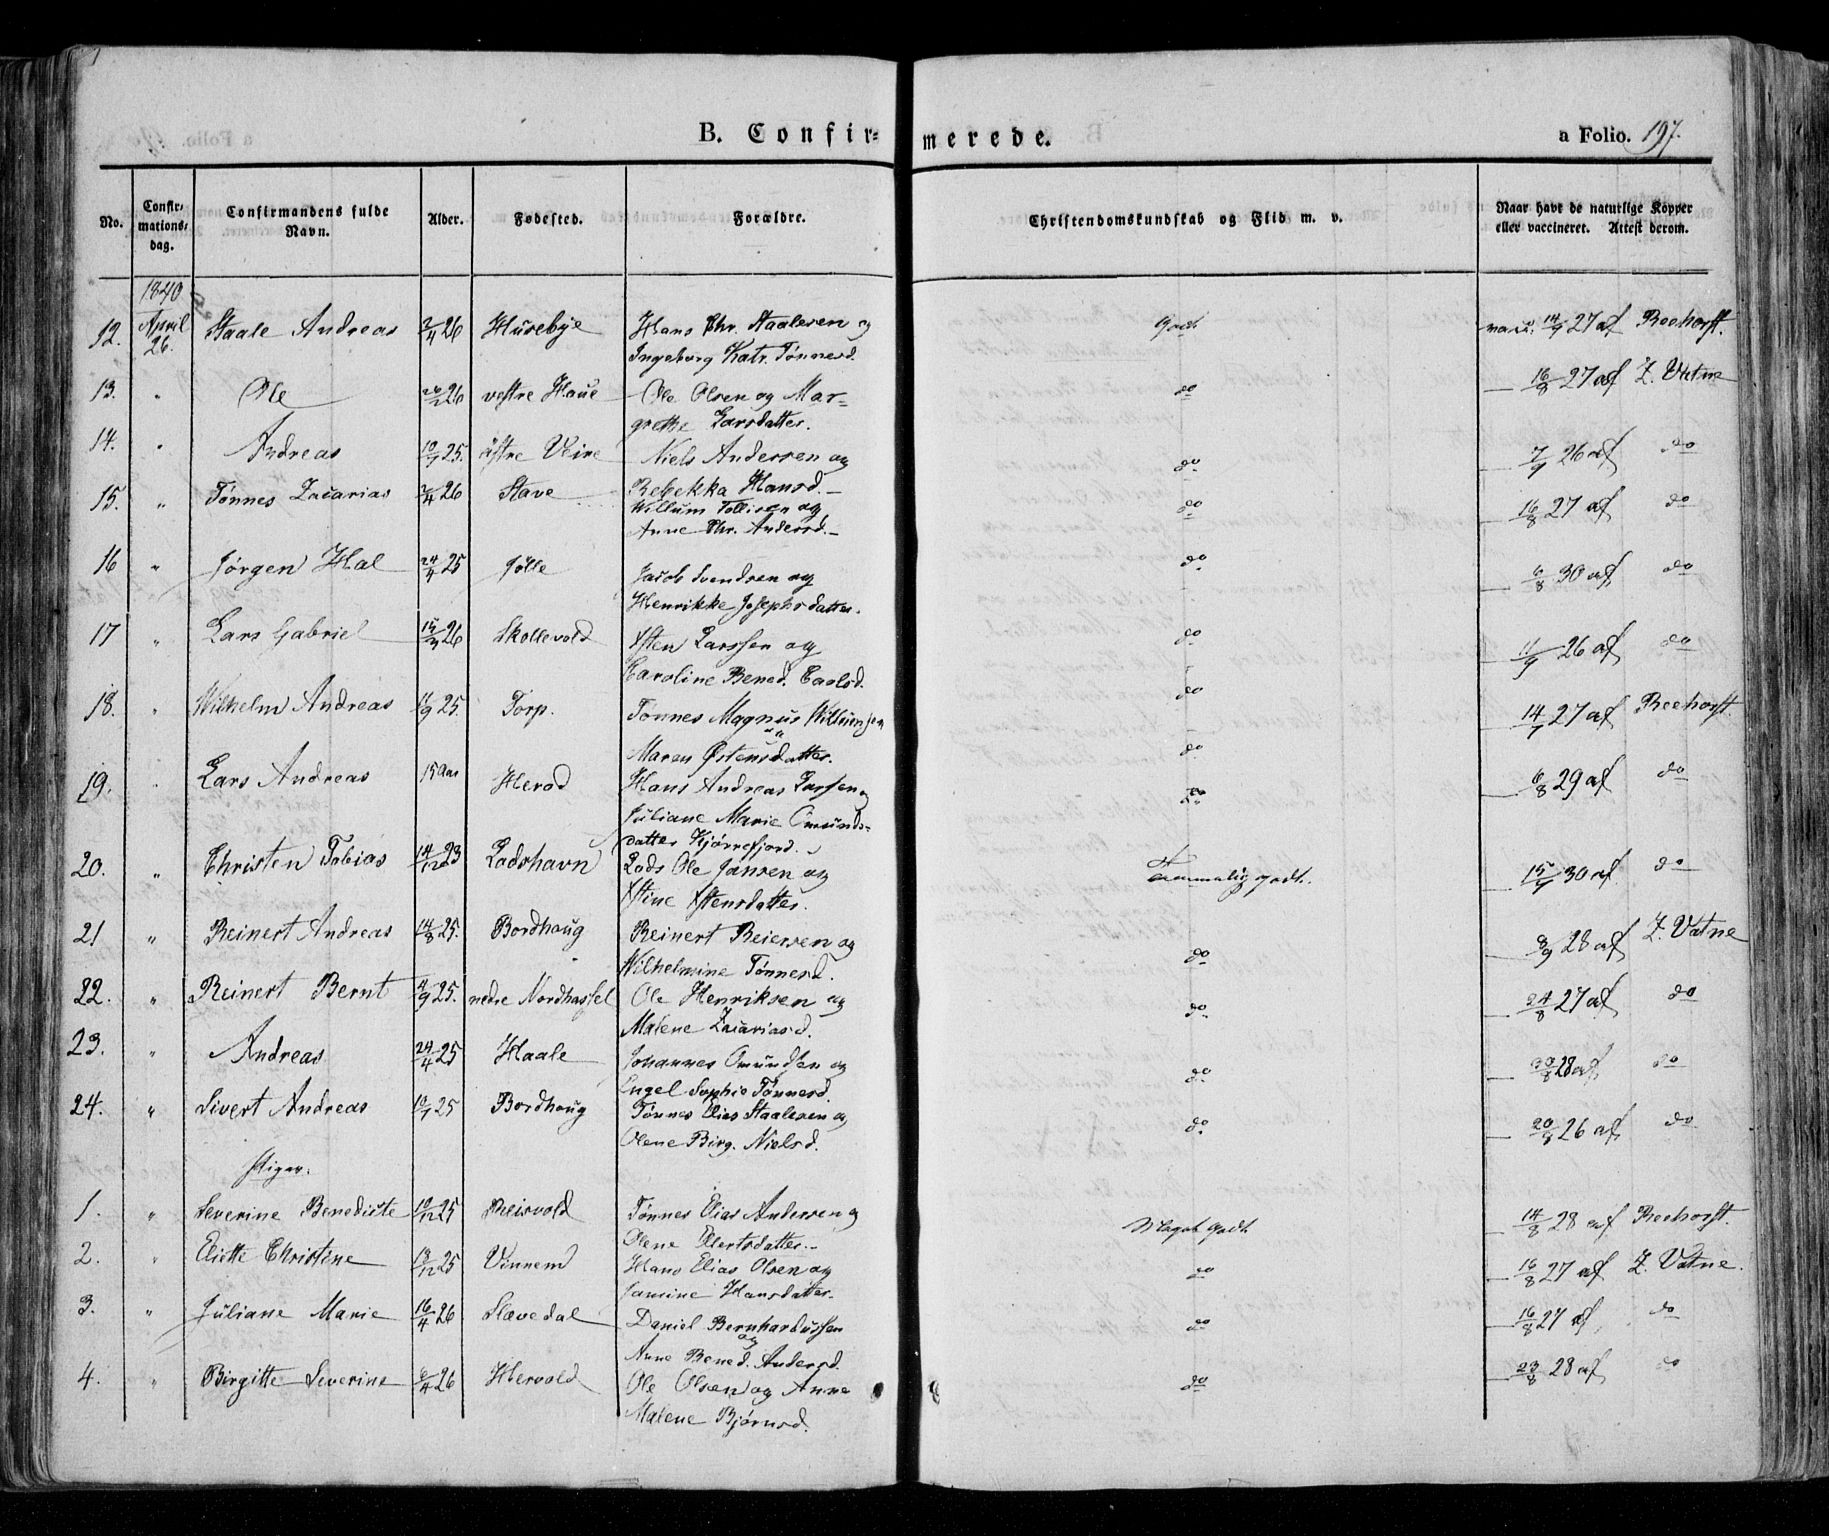 B. Confirmerede. a Folio. 197.
No. Confirmationsdag. Confirmandens fulde Navn. Alder. Fødested. Forældre. Christendomskundskab og Flid m. v. Naar havt de naturlige Kopper eller vaccineret. Attest derom.
1840
12. April 26. Staale Andreas 2/4 26 Husebye Hans Chr. Staalesen og Godt vacc. 14/7 27 af Reehorst.
Ingeborg Katr. Tønnesd.
13. " Ole 26 vestre Haue Ole Olsen og Mar- do — 16/8 27 af Z. Vatne
grethe Larsdatter.
14. " Andreas 10/7 25. østre Veire Niels Andersen og do — 7/9 26 af do
Rebekka Hansd. —
15. " Tønnes Zacarias 2/4 26 Stave Willum Tollisen og do — 16/8 27 af do
Anne Chr. Andersd. —
16 " Jørgen Hal 24/4 25 Jølle Jacob Svendsen og do — 6/8 30 af do
Henrikke Josephsdatter.
17 " Lars Gabriel 15/3 26 Skollevold Østen Larssen og do — 11/9 26 af do
Caroline Bened. Carlsd.
18. " Wilhelm Andreas 11/9 25. Torp. Tønnes Magnus Willumsen do — 14/7 27 af Reehorst.
Maren Østensdatter. do
19. " Lars Andreas 15 Aar Herod Hans Andreas Larsen og do — 6/8 29 af do
Juliane Marie Omunds-
datter Kjørrefjord.
20. " Christen Tobias 14/12 23 Ladshavn Lods Ole Jansen og Temmelig godt. — 15/7 30 af do
Stine Østensdatter.
21 " Reinert Andreas 14/8 25. Bordhaug Reinert Reiersen og do — 8/9 28 af Z. Vatne
Wilhelmine Tønnesd.
22. " Reinert Bernt 4/9 25. nedre Nordhassel Ole Henriksen og do — 24/8 27 af do
Malene Zacariasd.
23. " Andreas 24/4 25 Haale Johannes Omundsen og do — 30/8 28 af do
Engel Sophie Tønnesd.
24. " Sivert Andreas 10/7 25 Bordhaug Tønnes Elias Staalesen og do — 20/8 26 af do
Olene Birg. Nielsd.
Piger.
1. " Severine Benedicte 10/12 25 Reisvold Tønnes Elias Andersen og Meget godt — 14/8 28 af Reehorst.
Olene Elertsdatter. —
2. " Eliette Christine 13/12 25 Vinnem Hans Elias Olsen og do — 16/8 27 af Z. Vatne.
Jamine Hansdatter.
3. " Juliane Marie 16/4 26 Slævedal Daniel Bernhardussen do — 16/8 27 af do
og
Anne Bened. Andersd.
4. " Birgitte Severine 6/4 26 Hervold Ole Olsen og Anne do — 23/8 28 af do
Malene Bjørnsd.